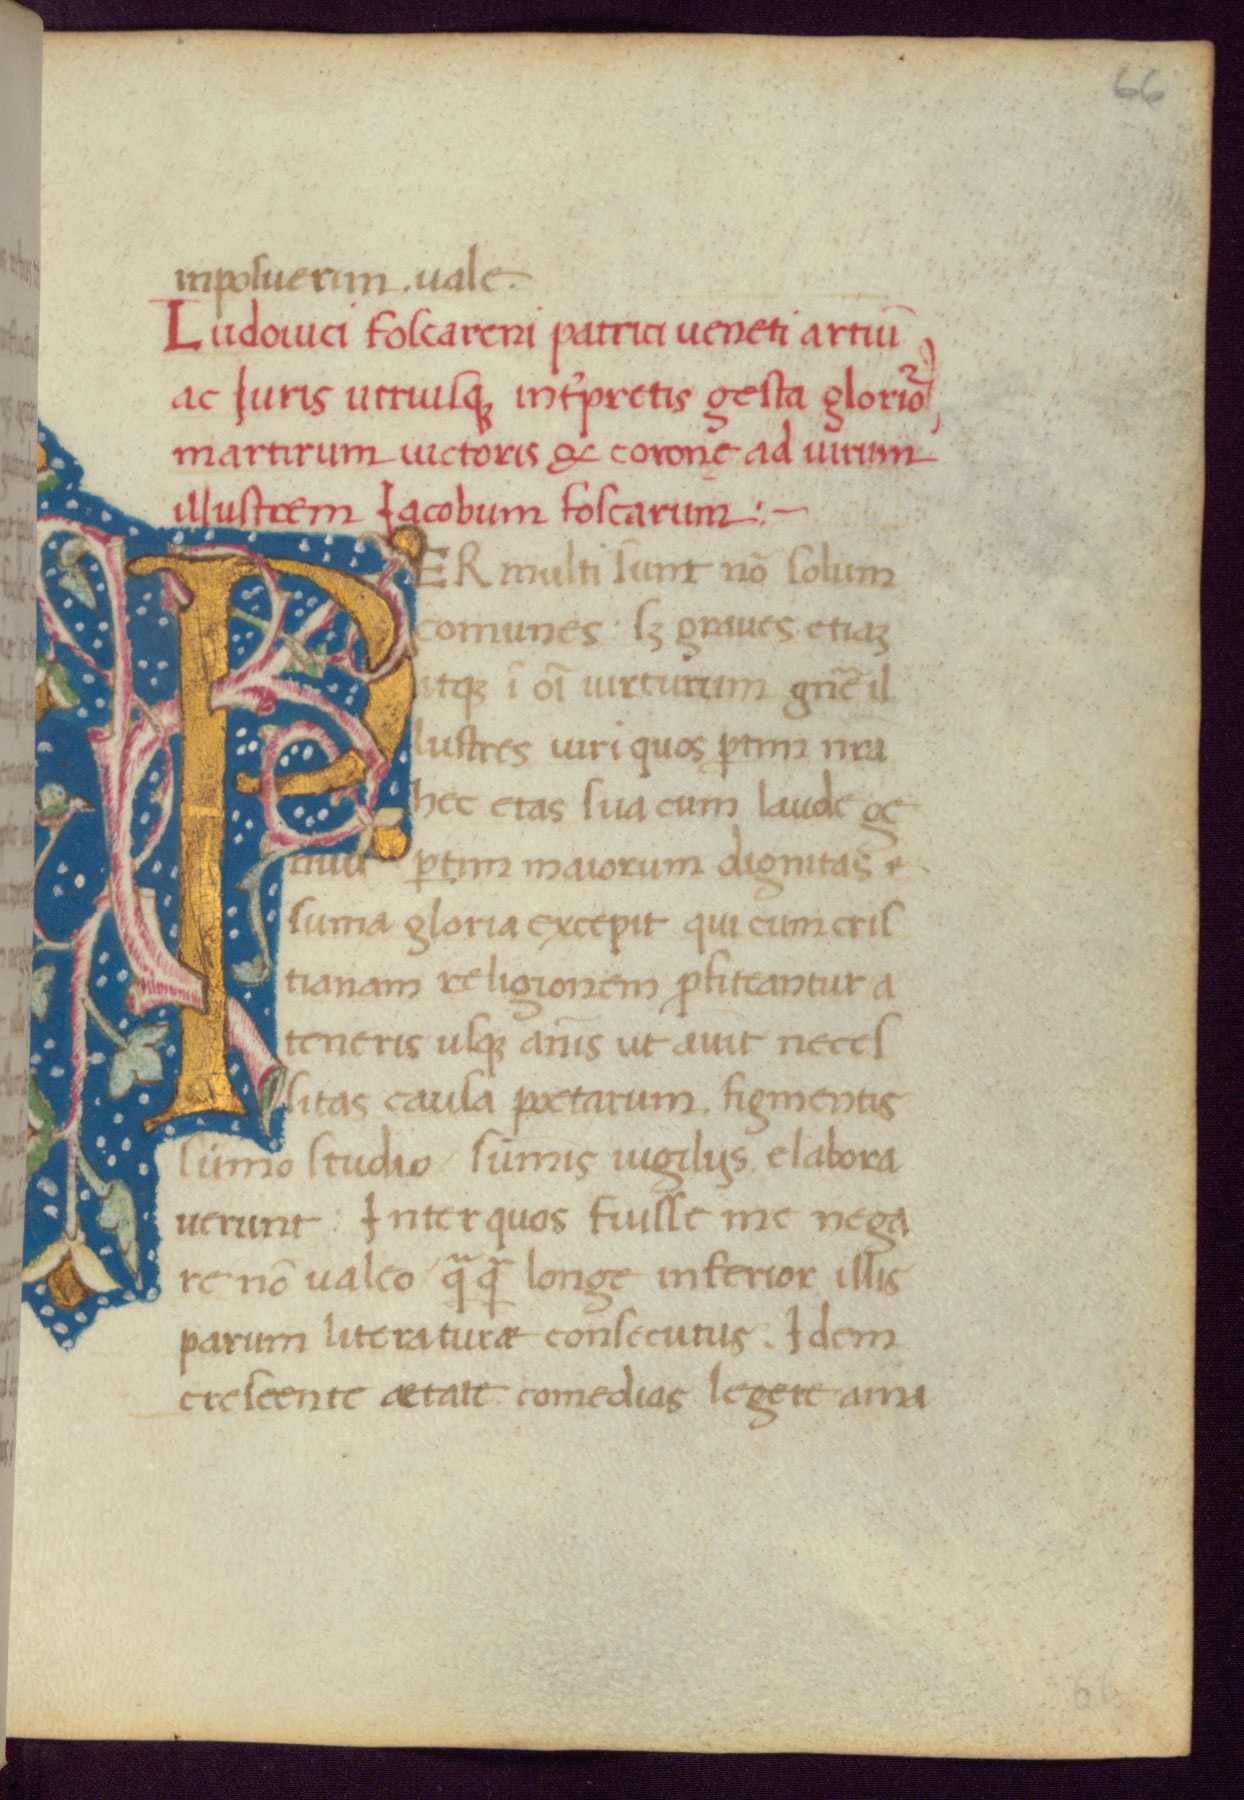 66
inposuerim . uale .
Ludouici foscareni patrici ueneti artiū
ac Iuris utriusqꝫ int̉pretis gesta glorioꝝ
martirum uictoris & corone ad uirum
illustrem Iacobum foscarum : –
PER multi sunt nō solum
comunes . sꝫ graues etiaꝫ
atqꝫ ī oī uirtutum gn̄e il
lustres uiri quos ꝑtim nr̄a
hec etas sua cum laude ge
nuit ꝑtim maiorum dignitas &
suma gloria excepit qui cum cris
tianam religionem ꝓfiteantur a
teneris usqꝫ an̄is ut auīt neces
sitas causa poetarum . figmentis
sūmo studio / sūmis uigilijs elabora
uerunt : Inter quos fuisse me nega
re nō ualeo q̄ꝗ̄ longe inferior illis
parum literaturæ consecutus . Idem
crescente ætate comedias legere ama
66